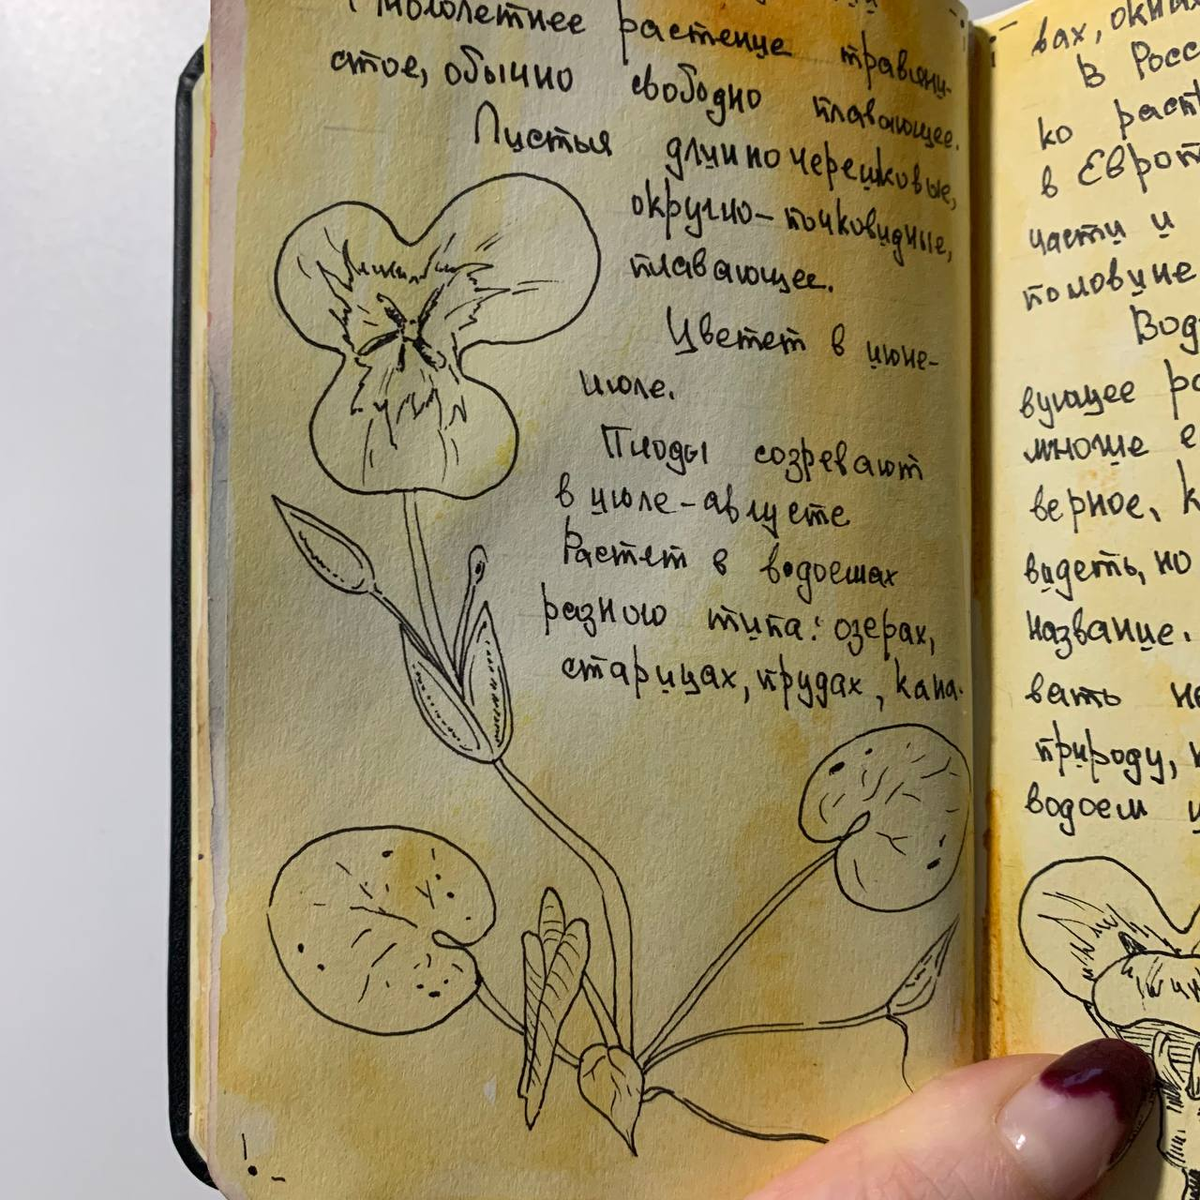 Многолетнее растение травяни-
стое, обычно свободно плавающее.
Листья длинночерешковые,
округло-почковидные,
плавающее.
Цветет в июне-
июле.
Плоды созревают
в июле-августе
Растет в водоемах
разного типа: озерах,
старицах, прудах, кана-
вах, окнах
В Росс
ко раст
в Европ
части и
половине
Вод
вующее ра
многие е
верное, к
видеть, но
название.
вать не
природу, н
водоем и